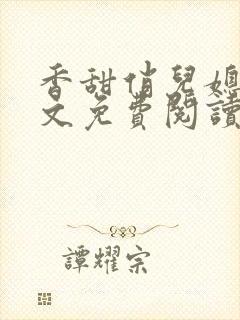 香甜俏兒媳
文免費閱讀
譚耀宗